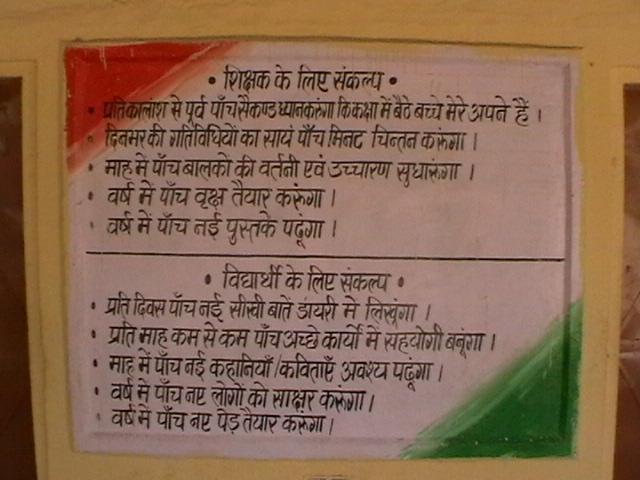 • शिक्षक के लिए संकल्प •
• प्रतिकालांश से पूर्व पाँच सैकण्ड ध्यान करुंगा कि कक्षा में बैठे बच्चे मेरे अपने हैं ।
• दिनभर की गतिविधियों का सायं पाँच मिनट चिन्तन करूंगा ।
• माह में पाँच बालकों की वर्तनी एवं उच्चारण सुधारूंगा ।
• वर्ष में पाँच वृक्ष तैयार करूंगा ।
• वर्ष में पाँच नई पुस्तके पढूंगा ।
• विद्यार्थी के लिए संकल्प •
• प्रति दिवस पाँच नई सीखी बातें डायरी में लिखूंगा ।
• प्रति माह कम से कम पाँच अच्छे कार्यो में सहयोगी बनूंगा ।
• माह में पाँच नई कहानियाँ/कविताएँ अवश्य पढूंगा ।
• वर्ष में पाँच नए लोगों को साक्षर करूंगा ।
• वर्ष में पाँच नए पेड़ तैयार करूंगा ।